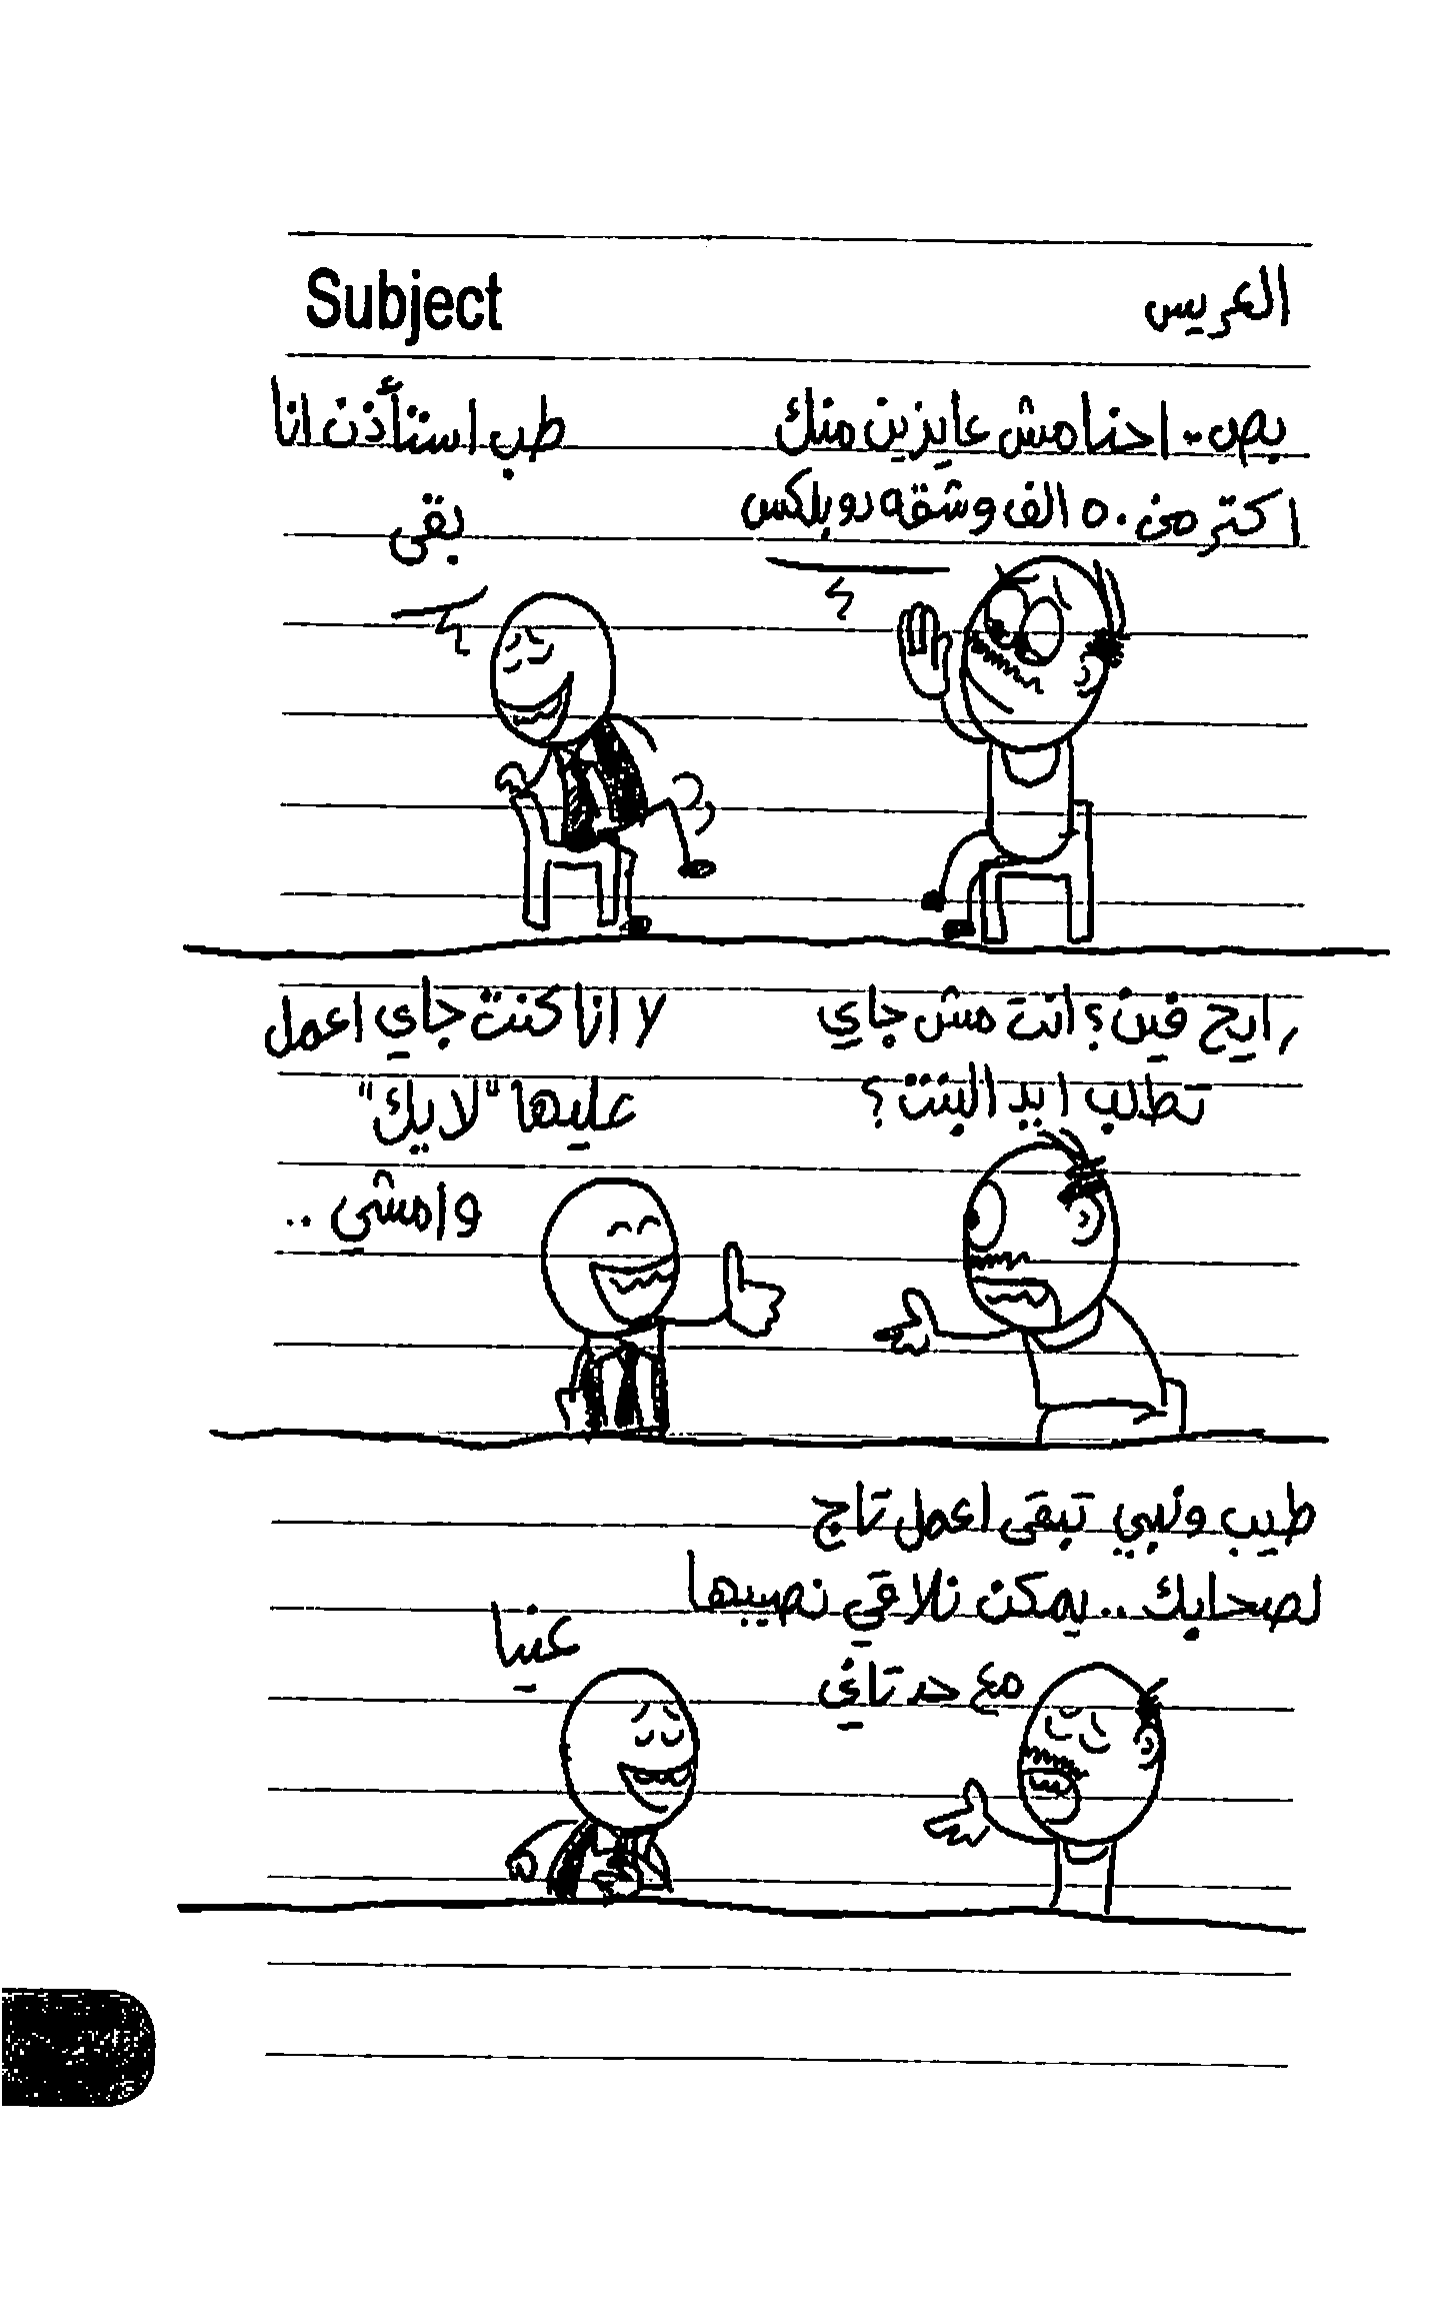 Subject
العريس
بص.. احنا مش عايزين منك
اكتر من ٥٠ الف وشقه دوبلكس
طب استأذن انا
بقى
رايح فين؟ انت مش جاي
تطلب ايد البنت؟
لا انا كنت جاي اعمل
عليها "لايك"
وامشي ..
طيب ونبي تبقى اعمل تاج
لصحابك .. يمكن نلاقي نصيبها
مع حد تاني
عنيا